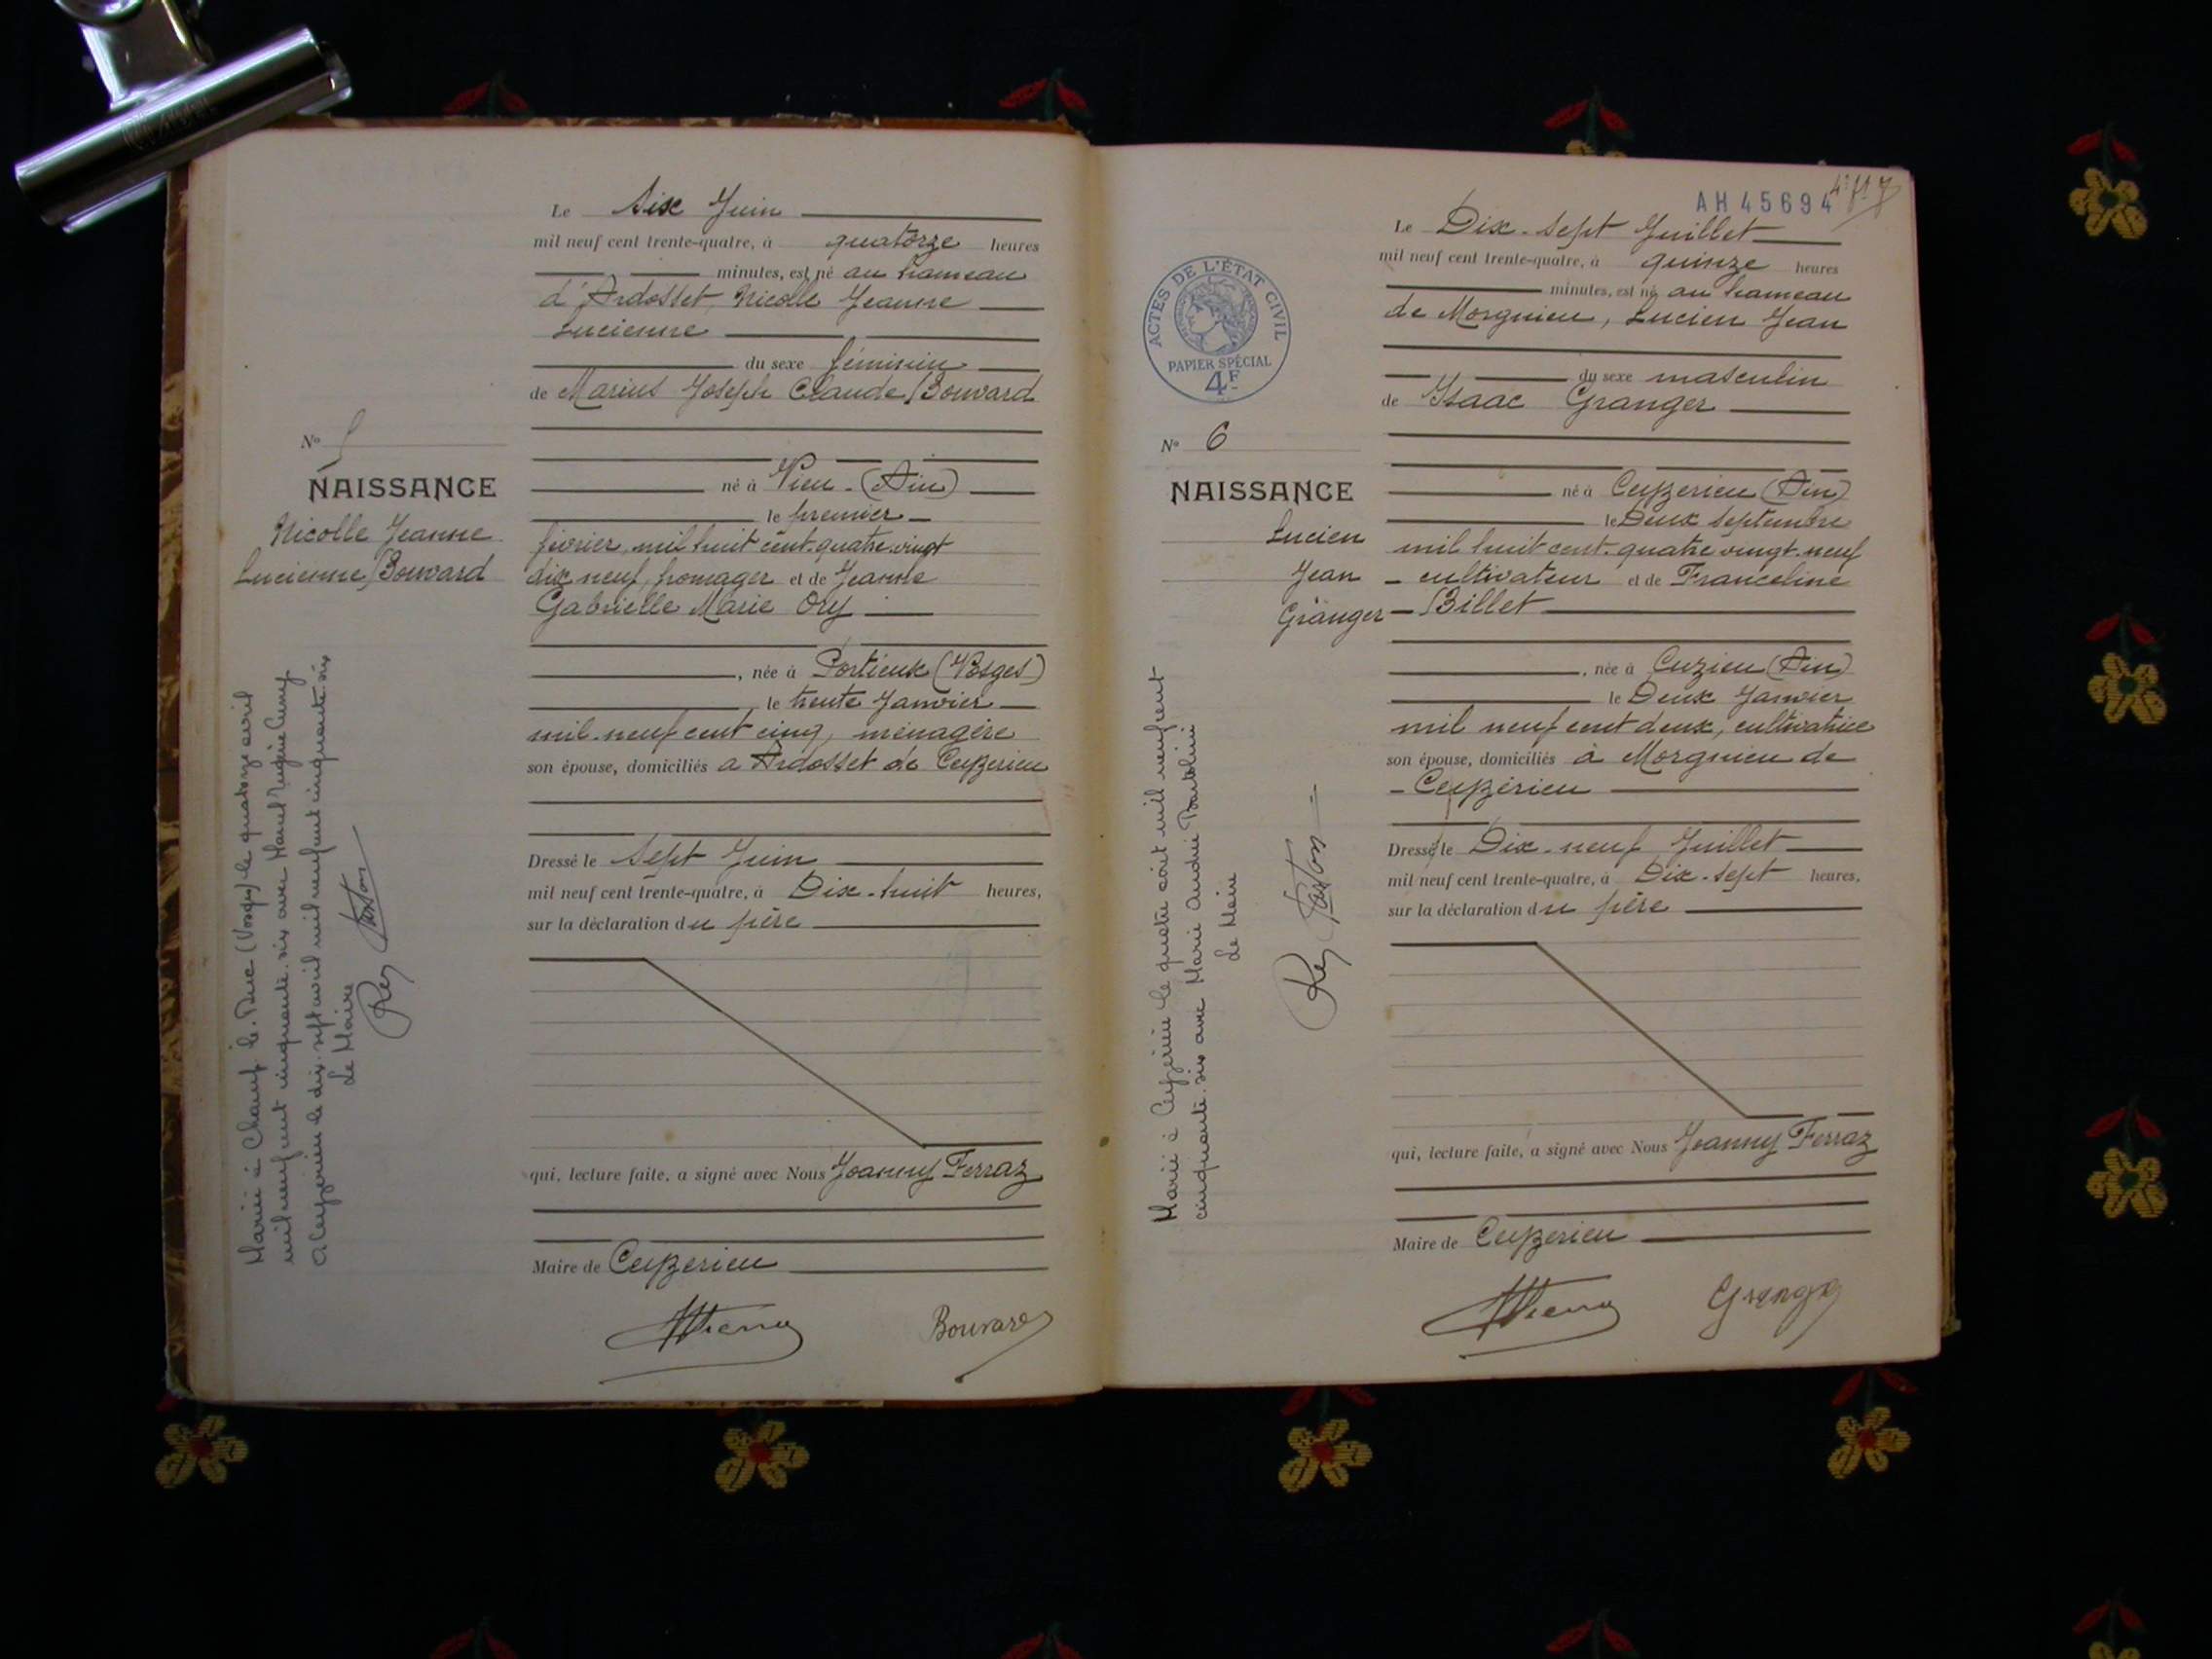 Le Six Juin
mil neuf cent trente-quatre, à quatorze heures
minutes, est né au hameau
d'Ardosset, Nicolle Jeanne
Lucienne
du sexe féminin
de Marius Joseph Claude Bouvard
né à Vieu - (Ain)
le premier
février mil huit cent quatre vingt
dix neuf, fromager et de Jeanne
Gabrielle Marie Ory
, née à Portieux (Vosges)
le trente Janvier
mil neuf cent cinq, ménagère
son épouse, domiciliés à Ardosset de Ceyzerieu
Dressé le Sept Juin
mil neuf cent trente-quatre, à Dix-huit heures,
sur la déclaration du père
qui, lecture faite, a signé avec Nous Joanny Ferraz
Maire de Ceyzerieu
Bouvard
No 5
NAISSANCE
Nicolle Jeanne
Lucienne Bouvard
Marié à Champ-le-Duc (Vosges) le quatorze avril
mil neuf cent cinquante-six avec Marcel Eugène Cuny
à Ceyzerieu le dix-sept avril mil neuf cent cinquante-six
Le Maire
Rey
AH 45694
Le Dix-sept Juillet
mil neuf cent trente-quatre, à quinze heures
minutes, est né au hameau
de Morgnieu, Lucien Jean
du sexe masculin
de Isaac Granger
né à Ceyzerieu (Ain)
le Deux Septembre
mil huit cent quatre vingt-neuf
cultivateur et de Franceline
Billet
, née à Cuzieu (Ain)
le Deux Janvier
mil neuf cent deux, cultivatrice
son épouse, domiciliés à Morgnieu de
Ceyzérieu
Dressé le Dix-neuf Juillet
mil neuf cent trente-quatre, à Dix-sept heures,
sur la déclaration du père
qui, lecture faite, a signé avec Nous Joanny Ferraz
Maire de Ceyzerieu
Granger
ACTES DE L'ÉTAT CIVIL
PAPIER SPÉCIAL
4F
No 6
NAISSANCE
Lucien
Jean
Granger
Marié à Ceyzerieu le quatre août mil neuf cent
cinquante-six avec Marie Andrée
Le Maire
Rey